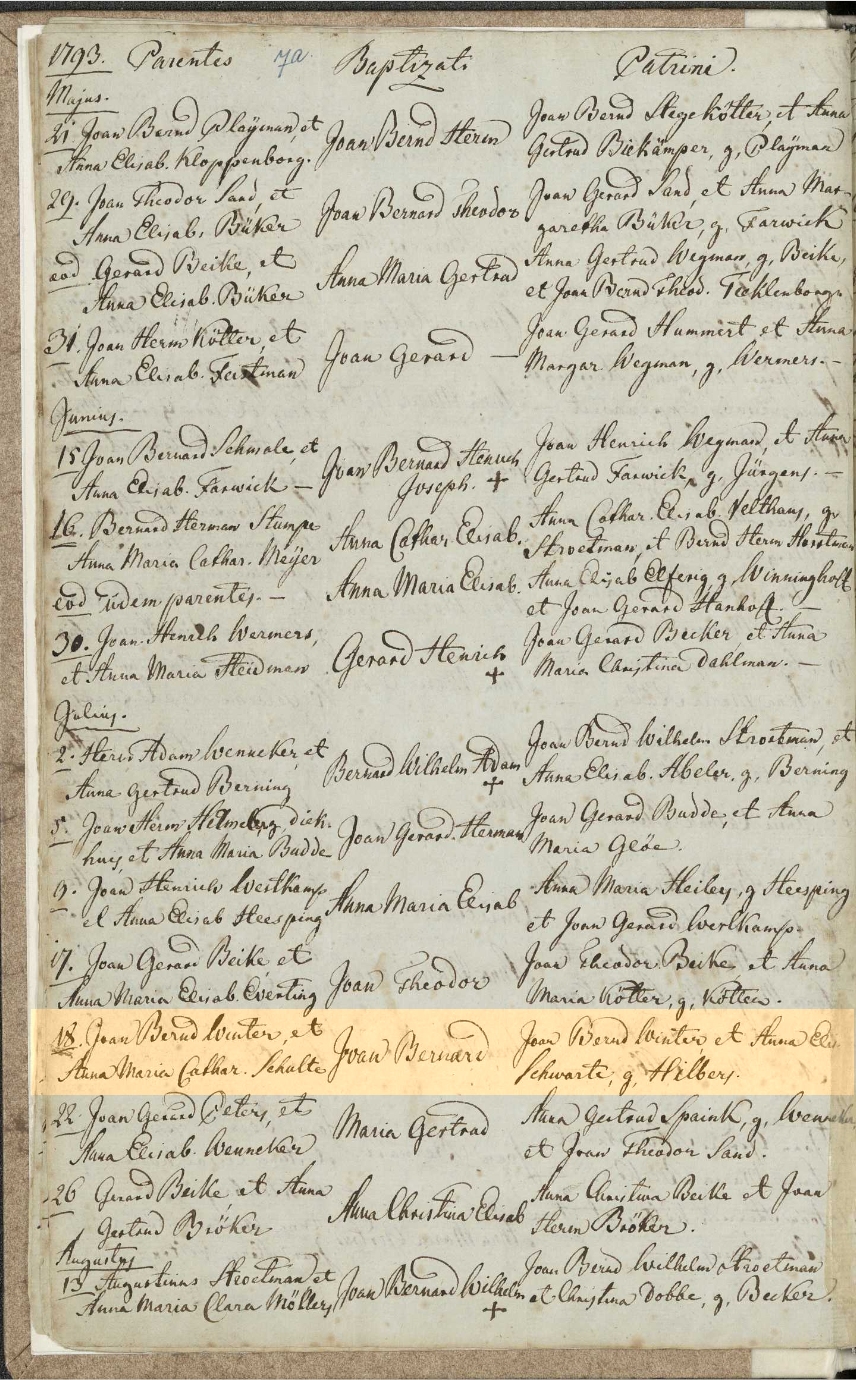 1793. Parentes 7a Baptizati Patrini.
Majus.
21. Joan Bernd Playman, et Joan Bernd Herm Joan Bernd Stegekötter, et Anna
Anna Elisab. Kloppenborg. Gertrud Biekämper, g, Playman
29. Joan Theodor Sand, et Joan Bernard Theodor Joan Gerard Sand, et Anna Mar-
Anna Elisab. Büker garetha Büker, g, Farwick
eod Gerard Beike, et Anna Maria Gertrud Anna Gertrud Wegman, g, Beike,
Anna Elisab. Büker et Joan Bernd Theod. Tecklenborg.
31. Joan Herm Kötter, et Joan Gerard — Joan Gerard Hummert et Anna
Anna Elisab. Margar. Wegman, g, Wermers. —
Junius.
15 Joan Bernard Schmale, et Joan Bernard Henrich Joan Henrich Wegman, et Anna
Anna Elisab. Farwick — Joseph. + Gertrud Farwick, g, Jürgens. —
16. Bernard Herman Stumpe Anna Cathar Elisab. Anna Cathar. Elisab. Velthaus, g,
Anna Maria Cathar. Meÿer Stroetman, et Bernd Herm Horstman
eod iidem parentes. — Anna Maria Elisab. Anna Elisab Elferig, g, Winninghoff
et Joan Gerard Hanhoff. —
30. Joan Henrich Wermers, Gerard Henrich Joan Gerard Becker et Anna
et Anna Maria Heidman + Maria Christina Dahlman. —
Julius.
2. Herm Adam Wenneker, et Bernard Wilhelm Adam Joan Bernd Wilhelm Stroetman, et
Anna Gertrud Berning + Anna Elisab. Abeler, g, Berning
5. Joan Herm diek- Joan Gerard Herman Joan Gerard Budde, et Anna
hus, et Anna Maria Budde Maria Glöe.
9. Joan Henrich Westkamp Anna Maria Elisab Anna Maria Heiles, g, Heesping
et Anna Elisab Heesping et Joan Gerard Westkamp.
17. Joan Gerard Beike et Joan Theodor Joan Theodor Beike, et Anna
Anna Maria Elisab. Everting Maria Kötter, g, Kötter.
18. Joan Bernd Winter, et Joan Bernard Joan Bernd Winter et Anna Elis.
Anna Maria Cathar. Schulte Schwarte, g, Hilbers.
22 Joan Gerard Peters, et Maria Gertrud Anna Gertrud Spaink, g, Wenneker
Anna Elisab. Wenneker et Joan Theodor Sand.
26 Gerard Beike et Anna Anna Christina Elisab Anna Christina Beike et Joan
Gertrud Bröker Herm Bröker.
Augustus
13 Augustinus Stroetman et Joan Bernard Wilhelm Joan Bernd Wilhelm Stroetman
Anna Maria Clara Möllers + et Christina Dobbe, g, Becker.